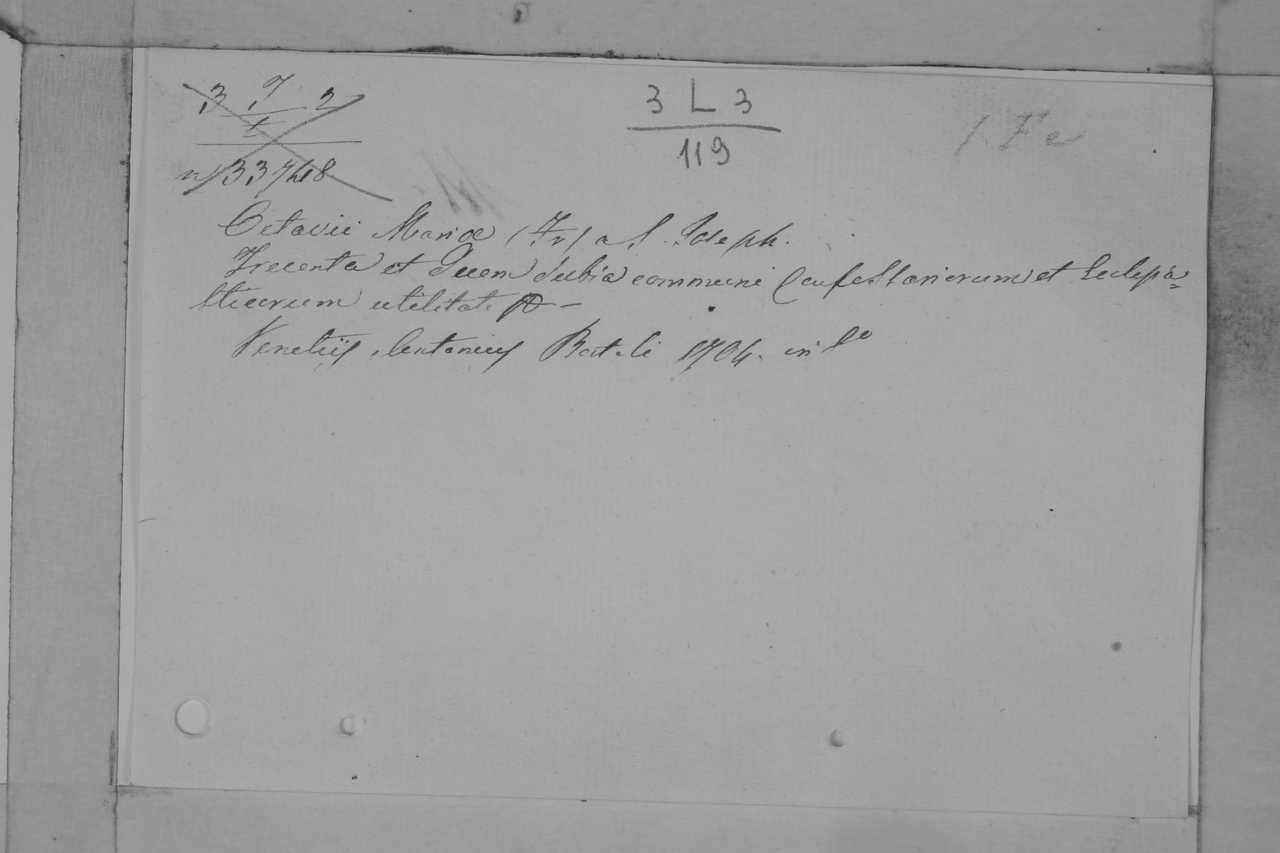 3 L 3
119
Octavii Mariæ (Fr) a S. Joseph.
Trecenta et Decem dubia communi Confessariorum et Eclesia=
sticorum utilitati
Venetiis, Antonius Bortoli 1704. in 8º